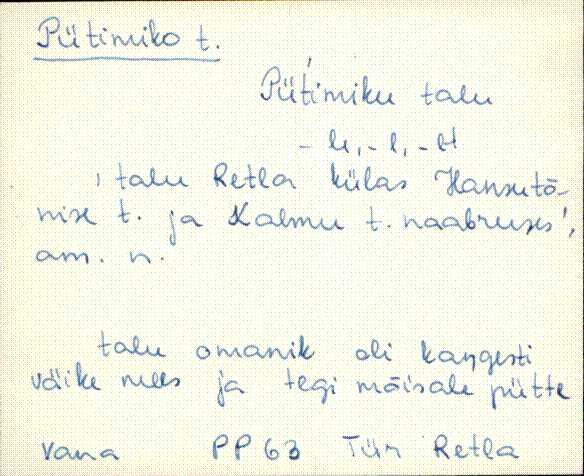 Pütimiko t.
Püt́imiku talu
- le, - l, - lt
, talu Retla külas Hansutõ-
nise t. ja Kalmu t. naabruses',
am. n.
talu omanik oli kaŋgesti
väike mees ja tegi mõisale pütte
vana PP 63 Tür Retla